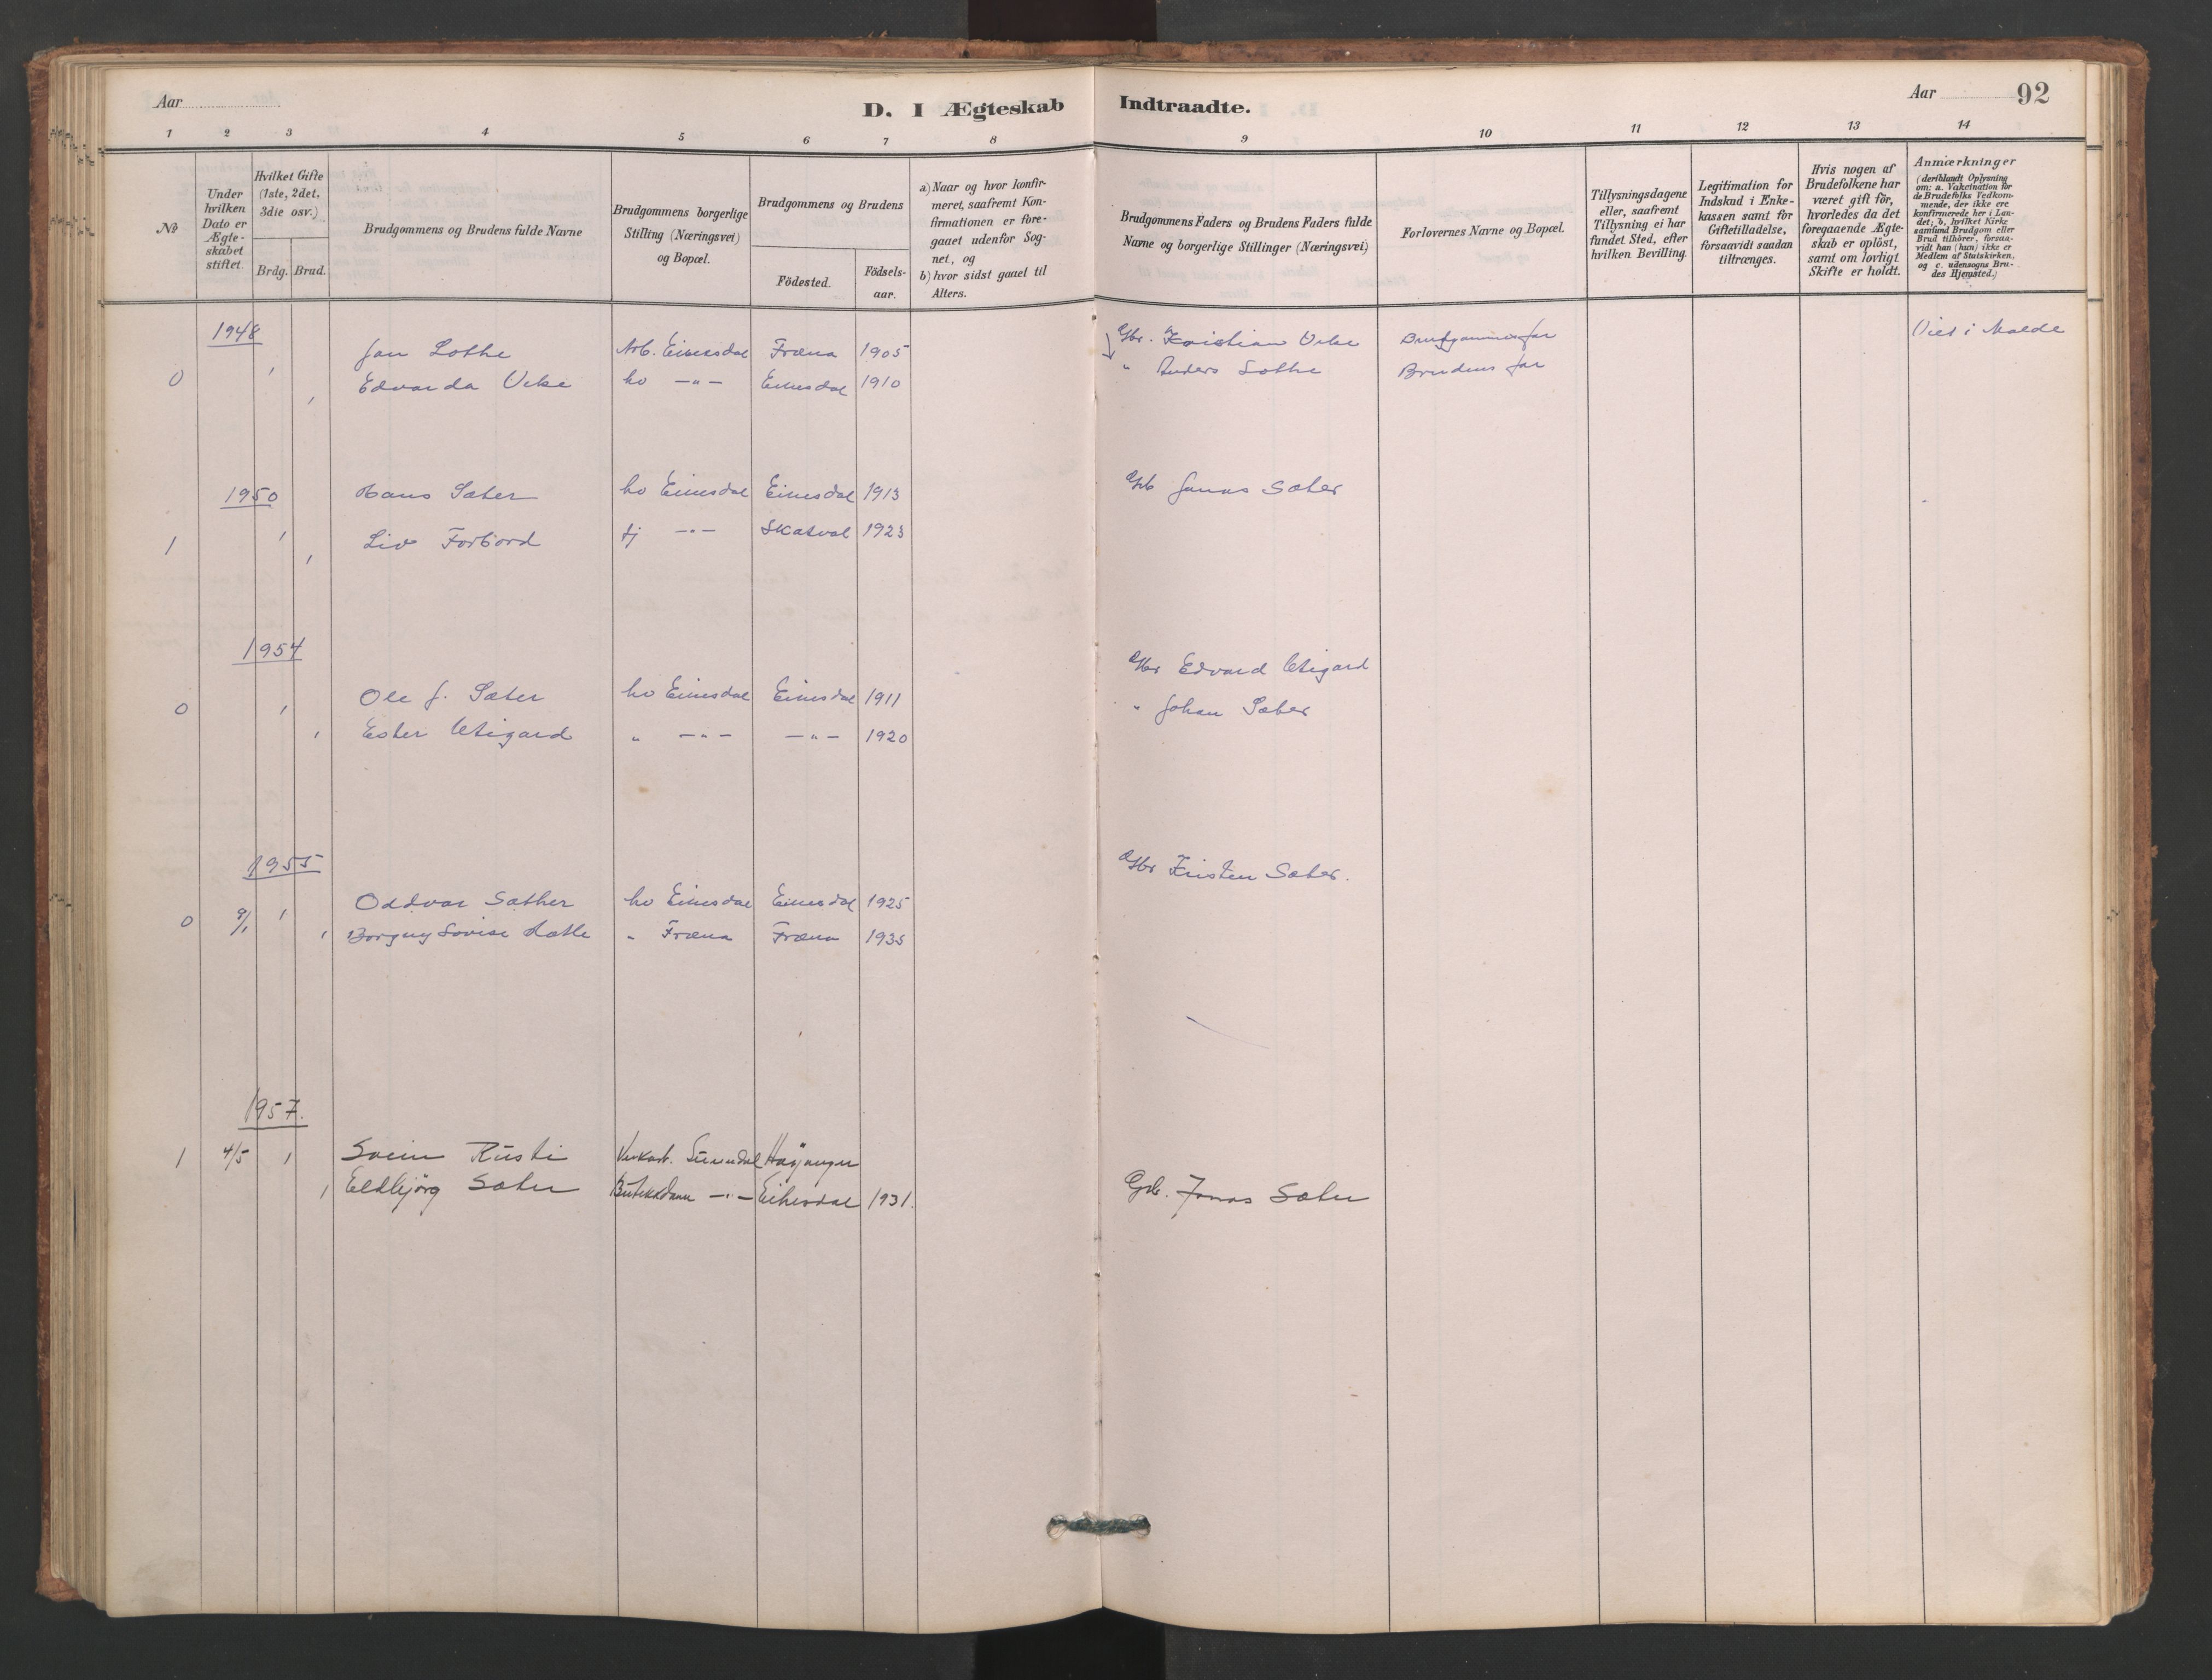 Aar
D. I Ægteskab Indtraadte.
Aar 92
1 2 3 4 5 6 7 8 9 10 11 12 13 14
№
Under hvilken Dato er Ægte-skabet stiftet.
Hvilket Gifte (1ste, 2det, 3die osv.)
Brdg. Brud.
Brudgommens og Brudens fulde Navne
Brudgommens borgerlige Stilling (Næringsvei) og Bopæl.
Brudgommens og Brudens
Födested.
Födsels-aar.
a) Naar og hvor konfir-meret, saafremt Kon-firmationen er fore-gaaet udenfor Sog-net, og
b) hvor sidst gaaet til Alters.
Brudgommens Faders og Brudens Faders fulde Navne og borgerlige Stillinger (Næringsvei)
Forlovernes Navne og Bopæl.
Tillysningsdagene eller, saafremt Tillysning ei har fundet Sted, efter hvilken Bevilling.
Legitimation for Indskud i Enke-kassen samt for Giftetilladelse, forsaavidt saadan tiltrænges.
Hvis nogen af Brudefolkene har været gift för, hvorledes da det foregaaende Ægte-skab er oplöst, samt om lovligt Skifte er holdt.
Anmærkninger (deriblandt Oplysning om: a. Vakcination for de Brudefolks Vedkom-mende, der ikke ere konfirmerede her i Lan-det; b. hvilket Kirke-samfund Brudgom eller Brud tilhörer, forsaa-vidt han (hun) ikke er Medlem af Statskirken, og c. udensogns Bru-des Hjemsted.)
1948
Jan Lothe Arb. Eikesdal Fræna 1905 Gbr. Kristian Utke Brudgommens far Viet i Molde
0 Edvarda Utke ho -"- Eikesdal 1910 " Anders Lothe Brudens far
1950 Hans Sæter ho Eikesdal Eikesdal 1913 Gb Jonas Sæter
1 Liv Forbord tj -"- Skatval 1923
1954
Gbr Edvard Utigard
0 Ole J. Sæter ho Eikesdal Eikesdal 1911 " Johan Sæter
Ester Utigard " -"- -"- 1920
1955
Gbr Kristen Sæter.
Oddvar Sæther ho Eikesdal Eikesdal 1925
0 9/1 Borgny Lovise Hatle " Fræna Fræna 1935
1957.
1 4/5 1 Svein Rusti Verkarb. Sunndal Høyanger
1 Eldbjørg Sæter Butikkdame -"- Eikesdal 1931. Gb. Jonas Sæter